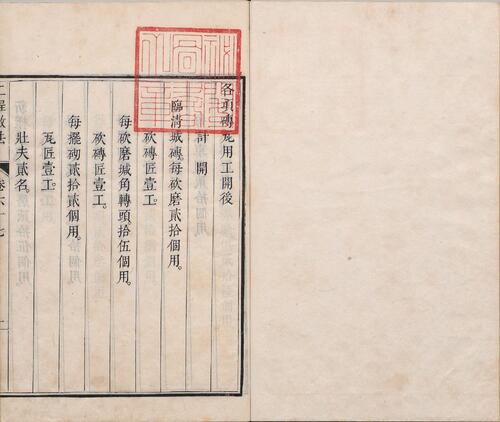 各項磚瓦用工開後
計開
臨清城磚每砍磨貳拾個用
砍磚匠壹工
每砍磨城角轉頭拾伍個用
砍磚匠壹工
每擺砌貳拾貳個用
瓦匠壹工
壯夫貳名
工程做法 卷六十七